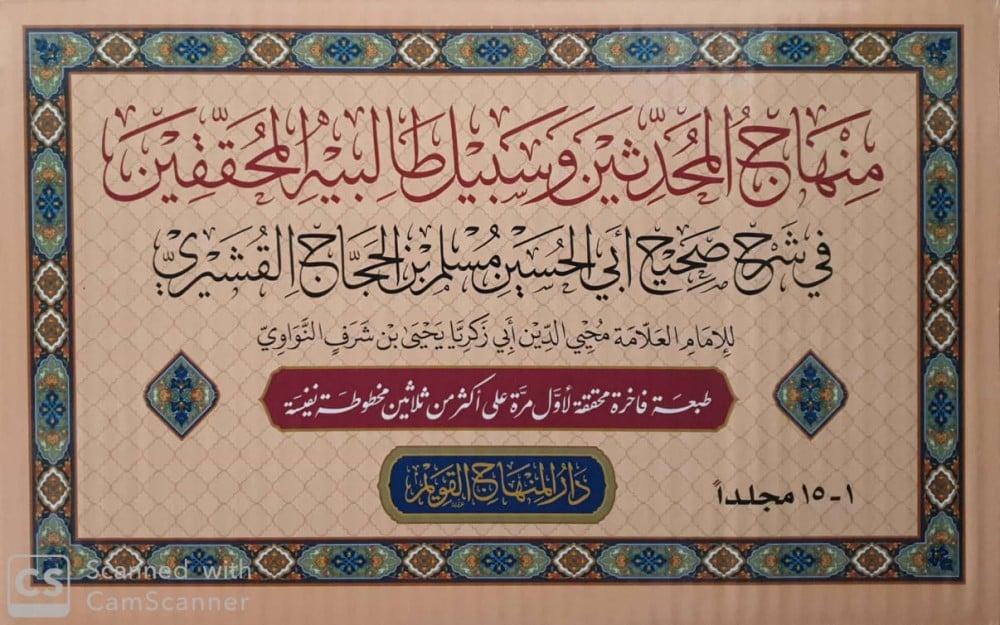 مِنْهَاجُ المُحَدِّثِينَ وَسَبِيلُ طَالِبِيهِ المُحَقِّقِينَ
في شَرْحِ صَحِيحِ أَبِي الحُسَيْنِ مُسْلِمِ بْنِ الحَجَّاجِ القُشَيْرِيِّ
لِلإِمَامِ العَلَّامَة مُحْيِي الدِّين أَبِي زَكَرِيَّا يَحْيَىٰ بْن شَرَفٍ النَّوَاوِيِّ
طبعة فاخرة محققة لأوّل مرّة على أكثر من ثلاثين مخطوطة نفيسة
دَارُ المِنْهَاجِ القَوِيمِ
١-١٥ مجلداً
CS Scanned with
CamScanner